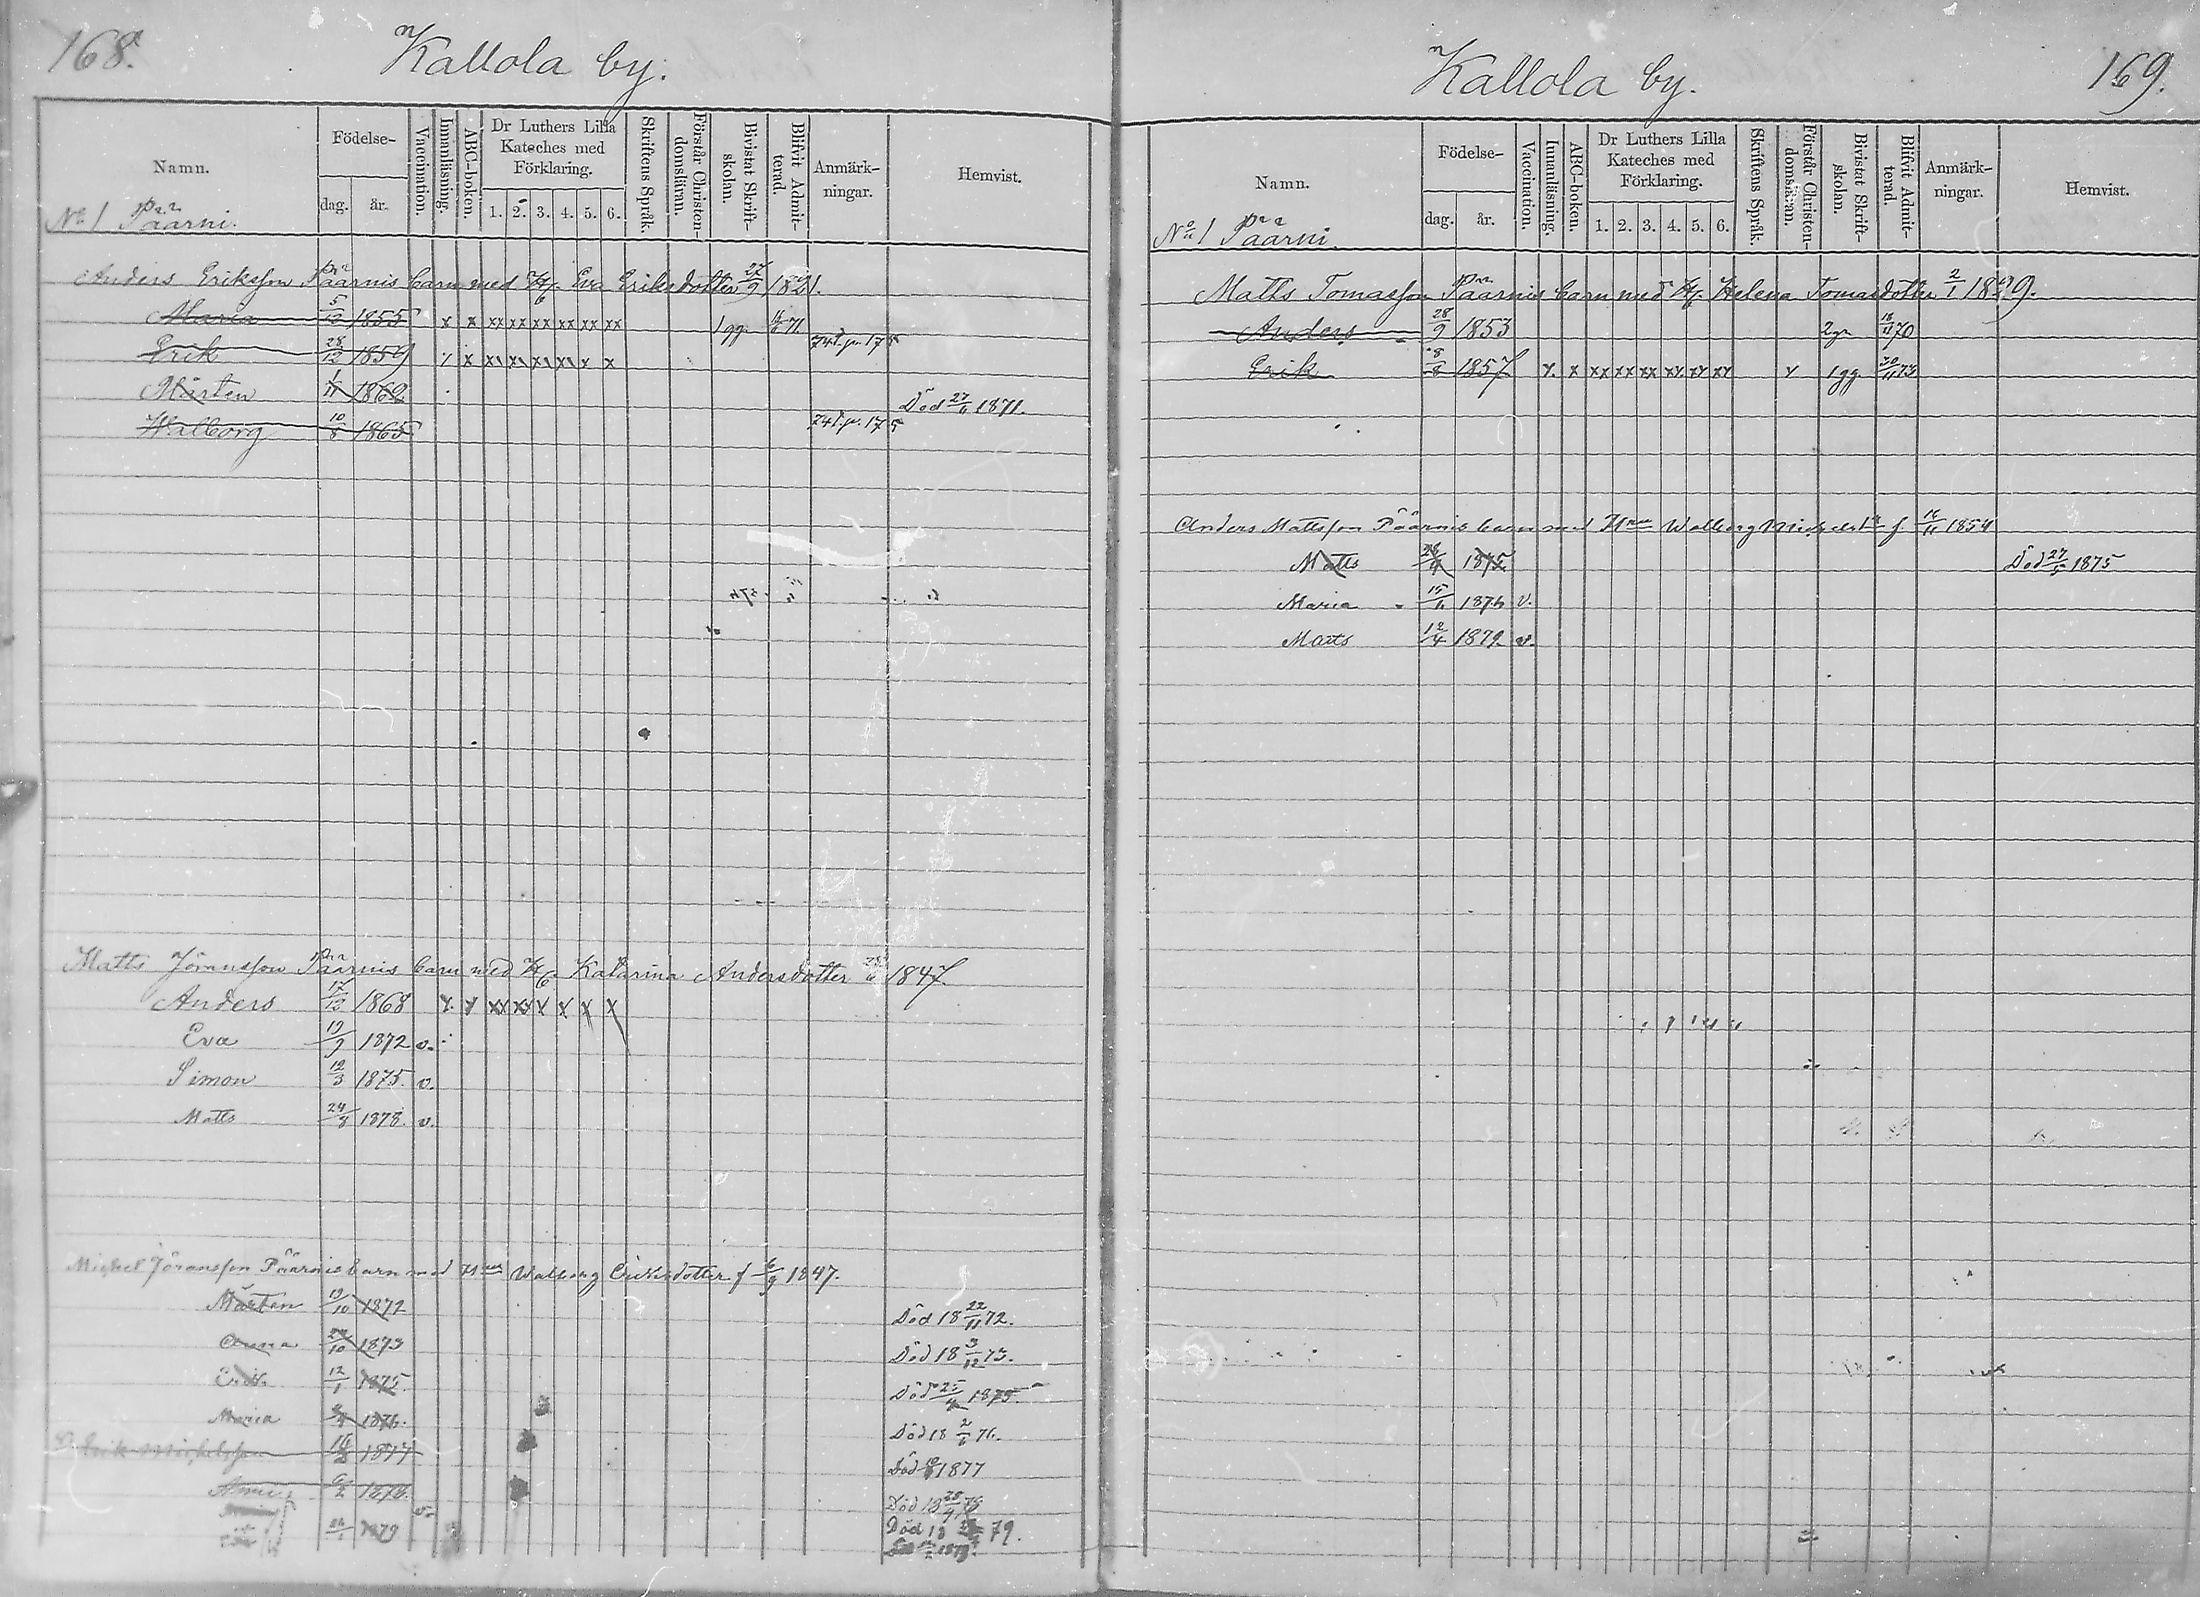 168.
Kallola by.
Namn.
Födelse-
dag.
år.
Vaccination.
Innanläsning.
ABC-boken.
Dr Luthers Lilla Kateches med Förklaring.
1. 2. 3. 4. 5. 6.
Skriftens Språk.
Förstår Christen-domsläran.
Bivistat Skrift-skolan.
Blifvit Admit-terad.
Anmärk-ningar.
Hemvist.
No 1 Päärni.
Anders Eriksson Päärnis barn med H. Eva Eriksdotter 27/9 1821.
Maria 5/10 1855 x x xx xx xx xx xx xx 1 gg 71
Erik 28/12 1859 x x x x x x x 74 l. p. 175
Mårten 1/11 1862 Död 27/6 1871.
Walborg 10/8 1865 74 l. p. 175
Matts Jöransson Päärnis barn med H. Katarina Andersdotter 1847.
Anders 17/12 1868 x x xx xx x x x x
Eva 19/9 1872 v.
Simon 12/3 1875. v.
Matts 24/8 1878. v.
Michel Jöransson Päärnis barn med Walborg Eriksdotter f 6/9 1847.
Mårten 19/10 1872 Död 18 22/11 72.
Anna 10 1873 Död 18 3/12 73.
Erik 12/1 1875. Död 25/4 1875.
Maria 1876. Död 18 2/6 76.
Erik Michelsson 1877 Död 1877
2 1878. Död 18
1879 Död 18 79.
169.
Kallola by.
Namn.
Födelse-
dag.
år.
Vaccination.
Innanläsning.
ABC-boken.
Dr Luthers Lilla Kateches med Förklaring.
1. 2. 3. 4. 5. 6.
Skriftens Språk.
Förstår Christen-domsläran.
Bivistat Skrift-skolan.
Blifvit Admit-terad.
Anmärk-ningar.
Hemvist.
No 1 Päärni
Matts Tomasson Päärnis barn med H. Helena Tomasdotter 2/1 1829.
Anders 28/9 1853 2 gr 70
Erik 8 1857 x. x xx xx xx xx xx xx 1 gg 73
Anders Mattsson Päärnis barn med Walborg f. 1854
Matts 1875 Död 27/5 1875
Maria 1876 v.
Matts 12/4 1879 v.